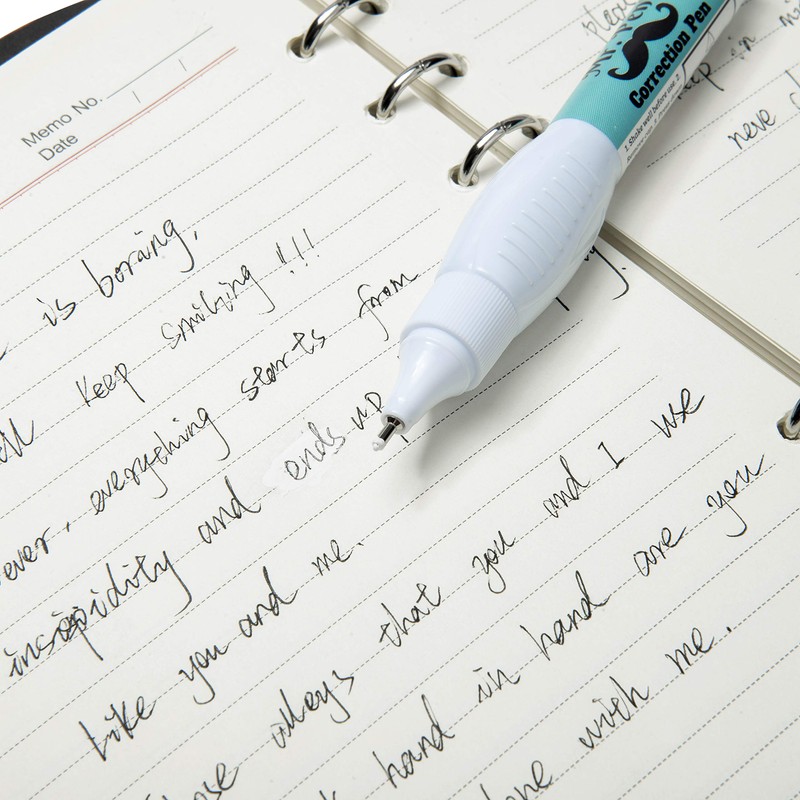 Memo No.
Date
is boring,
keep smiling !!!
everything starts from
insipidity and ends up
Like you and me.
always that you and I
hand in hand are you
with me.
Correction Pen
1. Shake well before use. 2.
in
neve